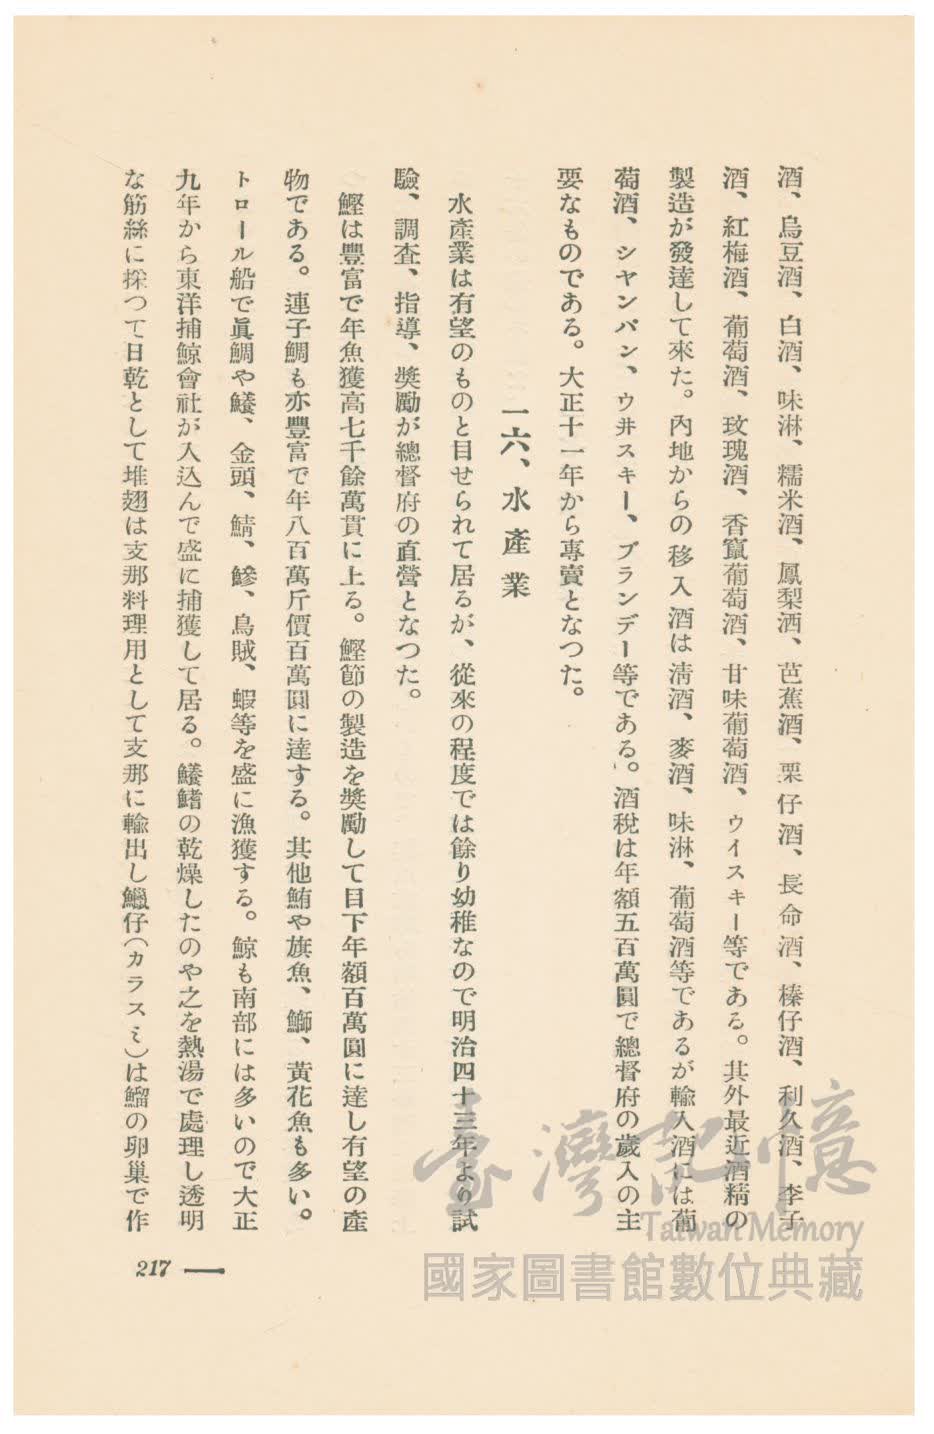 酒、烏豆酒、白酒、味淋、糯米酒、鳳梨酒、芭蕉酒、栗仔酒、長命酒、榛仔酒、利久酒、李子
酒、紅梅酒、葡萄酒、玫瑰酒、香竄葡萄酒、甘味葡萄酒、ウイスキー等である。其外最近酒精の
製造が發達して來た。內地からの移入酒は淸酒、麥酒、味淋、葡萄酒等であるが輸入酒には葡
萄酒、シヤンパン、ウ井スキー、ブランデー等である。酒稅は年額五百萬圓で總督府の歲入の主
要なものである。大正十一年から專賣となつた。
一六、水產業
水產業は有望のものと目せられて居るが、從來の程度では餘り幼稚なので明治四十三年より試
驗、調査、指導、奬勵が總督府の直營となつた。
鰹は豐富で年魚獲高七千餘萬貫に上る。鰹節の製造を奬勵して目下年額百萬圓に達し有望の產
物である。連子鯛も亦豐富で年八百萬斤價百萬圓に達する。其他鮪や旗魚、鰤、黃花魚も多い。
トロール船で眞鯛や鱶、金頭、鯖、鰺、烏賊、蝦等を盛に漁獲する。鯨も南部には多いので大正
九年から東洋捕鯨會社が入込んで盛に捕獲して居る。鱶鰭の乾燥したのや之を熱湯で處理し透明
な筋絲に採つて日乾として堆翅は支那料理用として支那に輸出し鱲仔(カラスミ)は鰡の卵巢で作
217
臺灣記憶
Taiwan Memory
國家圖書館數位典藏